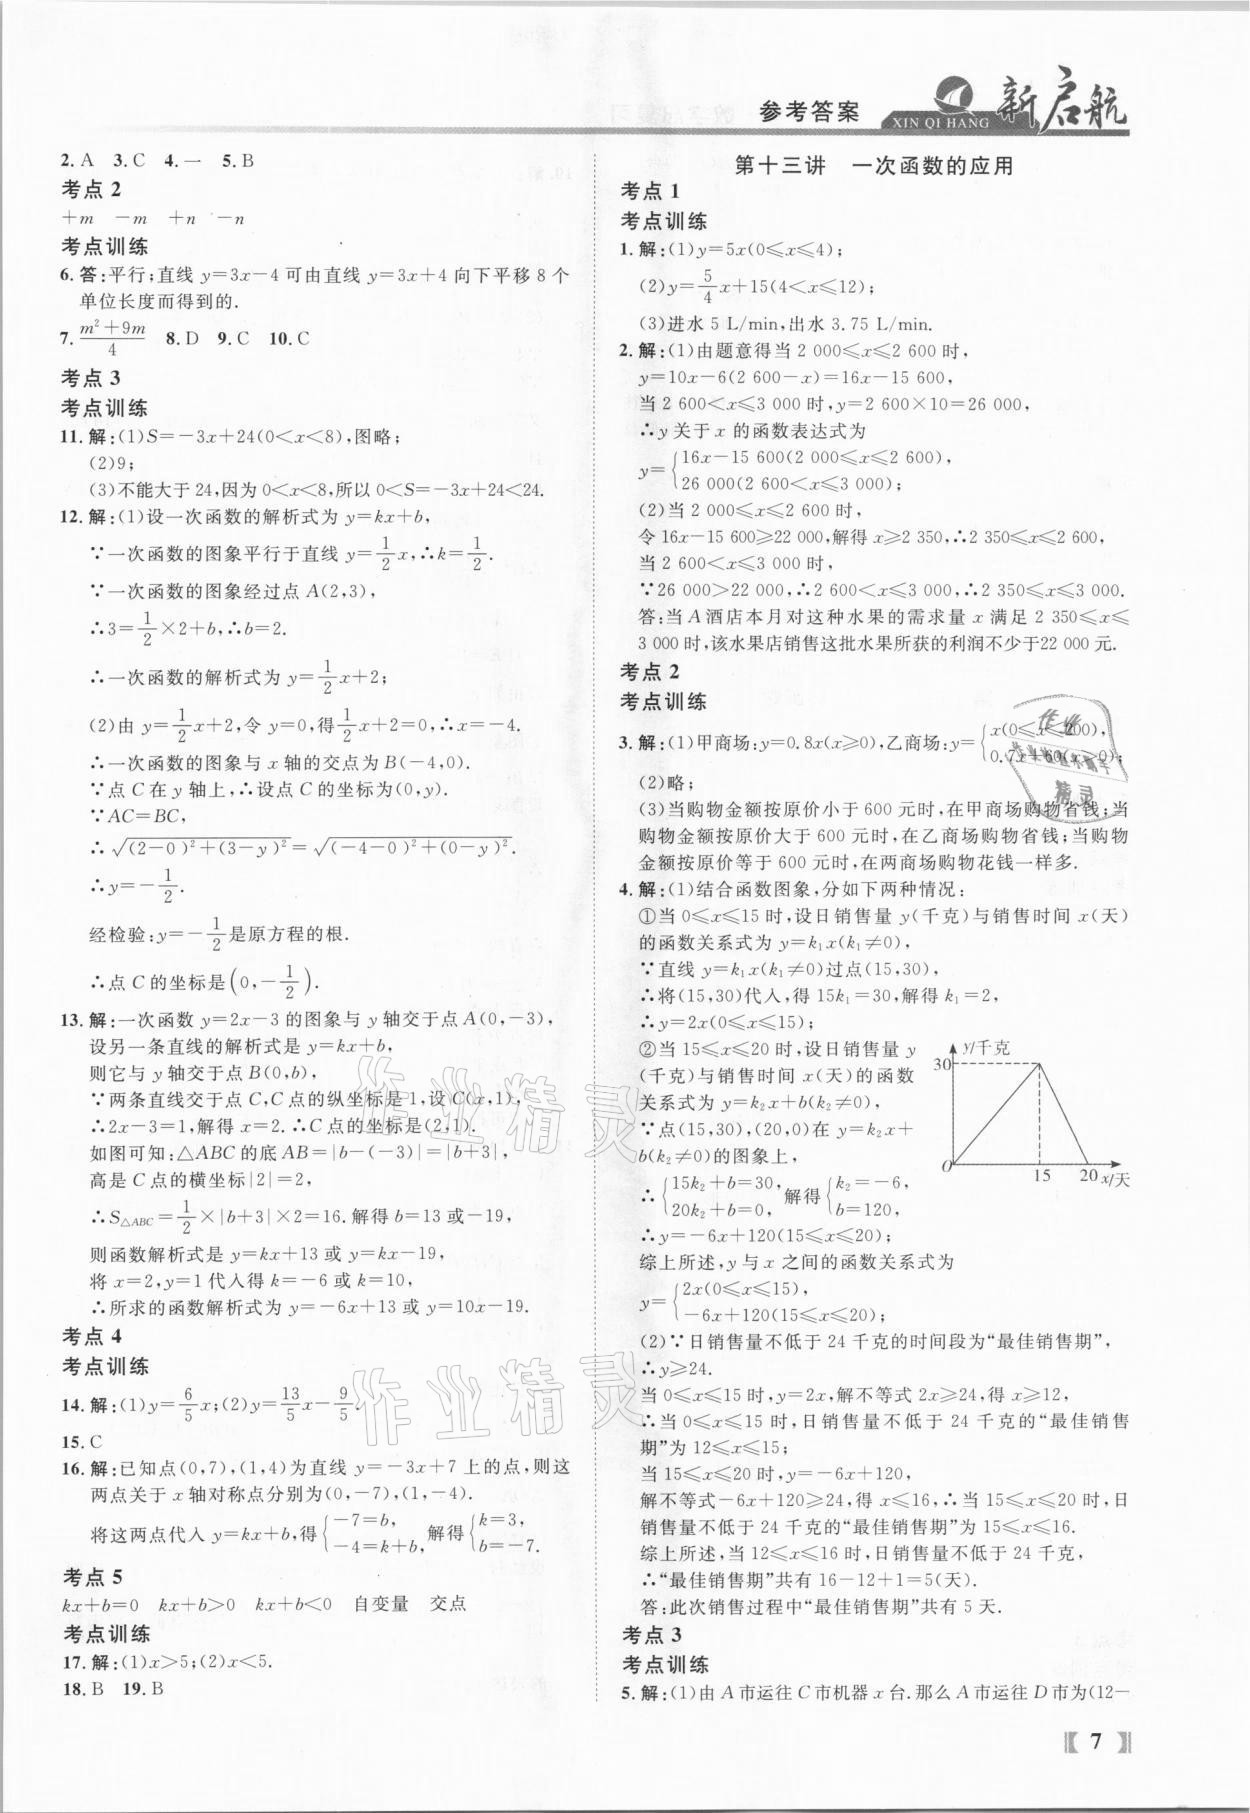 参考答案
XIN QI HANG 新启航
2. A　3. C　4. 一　5. B
考点 2
+m　-m　+n　-n
考点训练
6. 答:平行;直线 y=3x-4 可由直线 y=3x+4 向下平移 8 个
单位长度而得到的.
7. (m²+9m)/4　8. D　9. C　10. C
考点 3
考点训练
11. 解:(1)S=-3x+24(0<x<8),图略;
(2)9;
(3)不能大于 24,因为 0<x<8,所以 0<S=-3x+24<24.
12. 解:(1)设一次函数的解析式为 y=kx+b,
∵一次函数的图象平行于直线 y=1/2 x,∴k=1/2.
∵一次函数的图象经过点 A(2,3),
∴3=1/2×2+b,∴b=2.
∴一次函数的解析式为 y=1/2 x+2;
(2)由 y=1/2 x+2,令 y=0,得1/2 x+2=0,∴x=-4.
∴一次函数的图象与 x 轴的交点为 B(-4,0).
∵点 C 在 y 轴上,∴设点 C 的坐标为(0,y).
∵AC=BC,
∴√((2-0)²+(3-y)²)=√((-4-0)²+(0-y)²).
∴y=-1/2.
经检验:y=-1/2是原方程的根.
∴点 C 的坐标是(0,-1/2).
13. 解:一次函数 y=2x-3 的图象与 y 轴交于点 A(0,-3),
设另一条直线的解析式是 y=kx+b,
则它与 y 轴交于点 B(0,b),
∵两条直线交于点 C,C 点的纵坐标是 1,设 C(x,1),
∴2x-3=1,解得 x=2.∴C 点的坐标是(2,1).
如图可知:△ABC 的底 AB=|b-(-3)|=|b+3|,
高是 C 点的横坐标|2|=2,
∴S△ABC=1/2×|b+3|×2=16.解得 b=13 或-19,
则函数解析式是 y=kx+13 或 y=kx-19,
将 x=2,y=1 代入得 k=-6 或 k=10,
∴所求的函数解析式为 y=-6x+13 或 y=10x-19.
考点 4
考点训练
14. 解:(1)y=6/5 x;(2)y=13/5 x-9/5.
15. C
16. 解:已知点(0,7),(1,4)为直线 y=-3x+7 上的点,则这
两点关于 x 轴对称点分别为(0,-7),(1,-4).
将这两点代入 y=kx+b,得{-7=b, -4=k+b, 解得{k=3, b=-7.
考点 5
kx+b=0　kx+b>0　kx+b<0　自变量　交点
考点训练
17. 解:(1)x>5;(2)x<5.
18. B　19. B
第十三讲　一次函数的应用
考点 1
考点训练
1. 解:(1)y=5x(0≤x≤4);
(2)y=5/4 x+15(4<x≤12);
(3)进水 5 L/min,出水 3.75 L/min.
2. 解:(1)由题意得当 2 000≤x≤2 600 时,
y=10x-6(2 600-x)=16x-15 600,
当 2 600<x≤3 000 时,y=2 600×10=26 000,
∴y 关于 x 的函数表达式为
y={16x-15 600(2 000≤x≤2 600), 26 000(2 600<x≤3 000);
(2)当 2 000≤x≤2 600 时,
令 16x-15 600≥22 000,解得 x≥2 350,∴2 350≤x≤2 600,
当 2 600<x≤3 000 时,
∵26 000>22 000,∴2 600<x≤3 000,∴2 350≤x≤3 000.
答:当 A 酒店本月对这种水果的需求量 x 满足 2 350≤x≤
3 000 时,该水果店销售这批水果所获的利润不少于22 000 元.
考点 2
考点训练
3. 解:(1)甲商场:y=0.8x(x≥0),乙商场:y={x(0≤x≤200), 0.7x+60(x>0);
(2)略;
(3)当购物金额按原价小于 600 元时,在甲商场购物省钱;当
购物金额按原价大于 600 元时,在乙商场购物省钱;当购物
金额按原价等于 600 元时,在两商场购物花钱一样多.
4. 解:(1)结合函数图象,分如下两种情况:
①当 0≤x≤15 时,设日销售量 y(千克)与销售时间 x(天)
的函数关系式为 y=k₁x(k₁≠0),
∵直线 y=k₁x(k₁≠0)过点(15,30),
∴将(15,30)代入,得 15k₁=30,解得 k₁=2,
∴y=2x(0≤x≤15);
②当 15≤x≤20 时,设日销售量 y
(千克)与销售时间 x(天)的函数
关系式为 y=k₂x+b(k₂≠0),
∵点(15,30),(20,0)在 y=k₂x+
b(k₂≠0)的图象上,
∴{15k₂+b=30, 20k₂+b=0, 解得{k₂=-6, b=120,
∴y=-6x+120(15≤x≤20);
y/千克
30
O
15　20 x/天
综上所述,y 与 x 之间的函数关系式为
y={2x(0≤x≤15), -6x+120(15≤x≤20);
(2)∵日销售量不低于 24 千克的时间段为“最佳销售期”,
∴y≥24.
当 0≤x≤15 时,y=2x,解不等式 2x≥24,得 x≥12,
∴当 0≤x≤15 时,日销售量不低于 24 千克的“最佳销售
期”为 12≤x≤15;
当 15≤x≤20 时,y=-6x+120,
解不等式-6x+120≥24,得 x≤16,∴当 15≤x≤20 时,日
销售量不低于 24 千克的“最佳销售期”为 15≤x≤16.
综上所述,当 12≤x≤16 时,日销售量不低于 24 千克,
∴“最佳销售期”共有 16-12+1=5(天).
答:此次销售过程中“最佳销售期”共有 5 天.
考点 3
考点训练
5. 解:(1)由 A 市运往 C 市机器 x 台.那么 A 市运往 D 市为(12-
7
作业精灵
作业精灵
作业
精灵